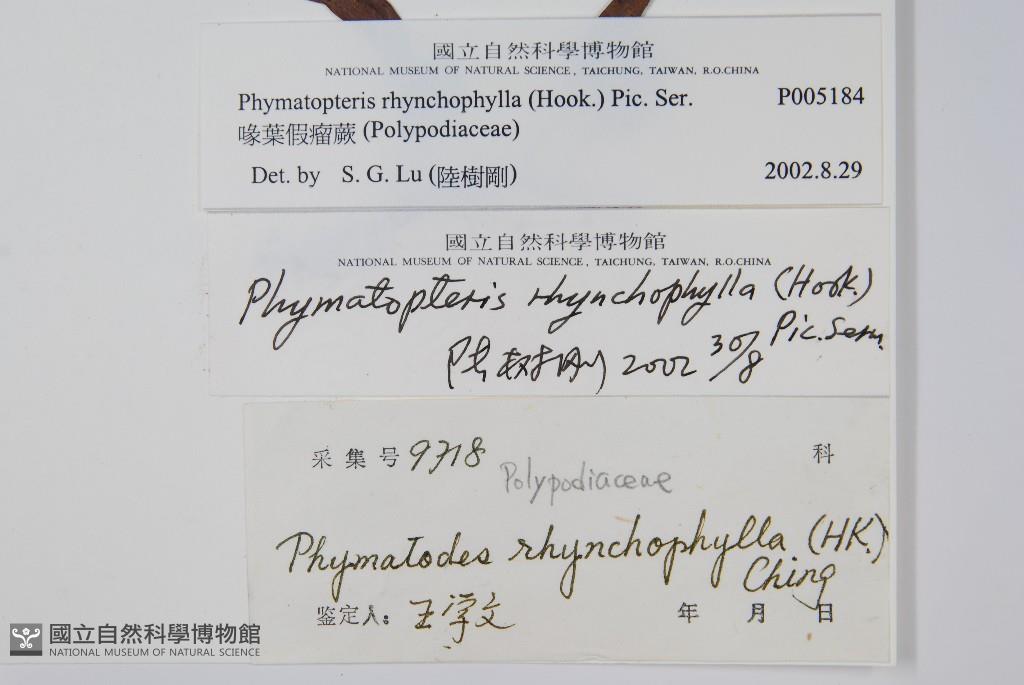 國立自然科學博物館
NATIONAL MUSEUM OF NATURAL SCIENCE, TAICHUNG, TAIWAN, R.O.CHINA
Phymatopteris rhynchophylla (Hook.) Pic. Ser. P005184
喙葉假瘤蕨 (Polypodiaceae)
Det. by S. G. Lu (陸樹剛) 2002.8.29
國立自然科學博物館
NATIONAL MUSEUM OF NATURAL SCIENCE, TAICHUNG, TAIWAN, R.O.CHINA
Phymatopteris rhynchophylla (Hook.)
Pic. Serm.
陆树刚 2002 30/8
采集号 9718 科
Polypodiaceae
Phymatodes rhynchophylla (HK.)
Ching
鉴定人: 王学文 年 月 日
國立自然科學博物館
NATIONAL MUSEUM OF NATURAL SCIENCE